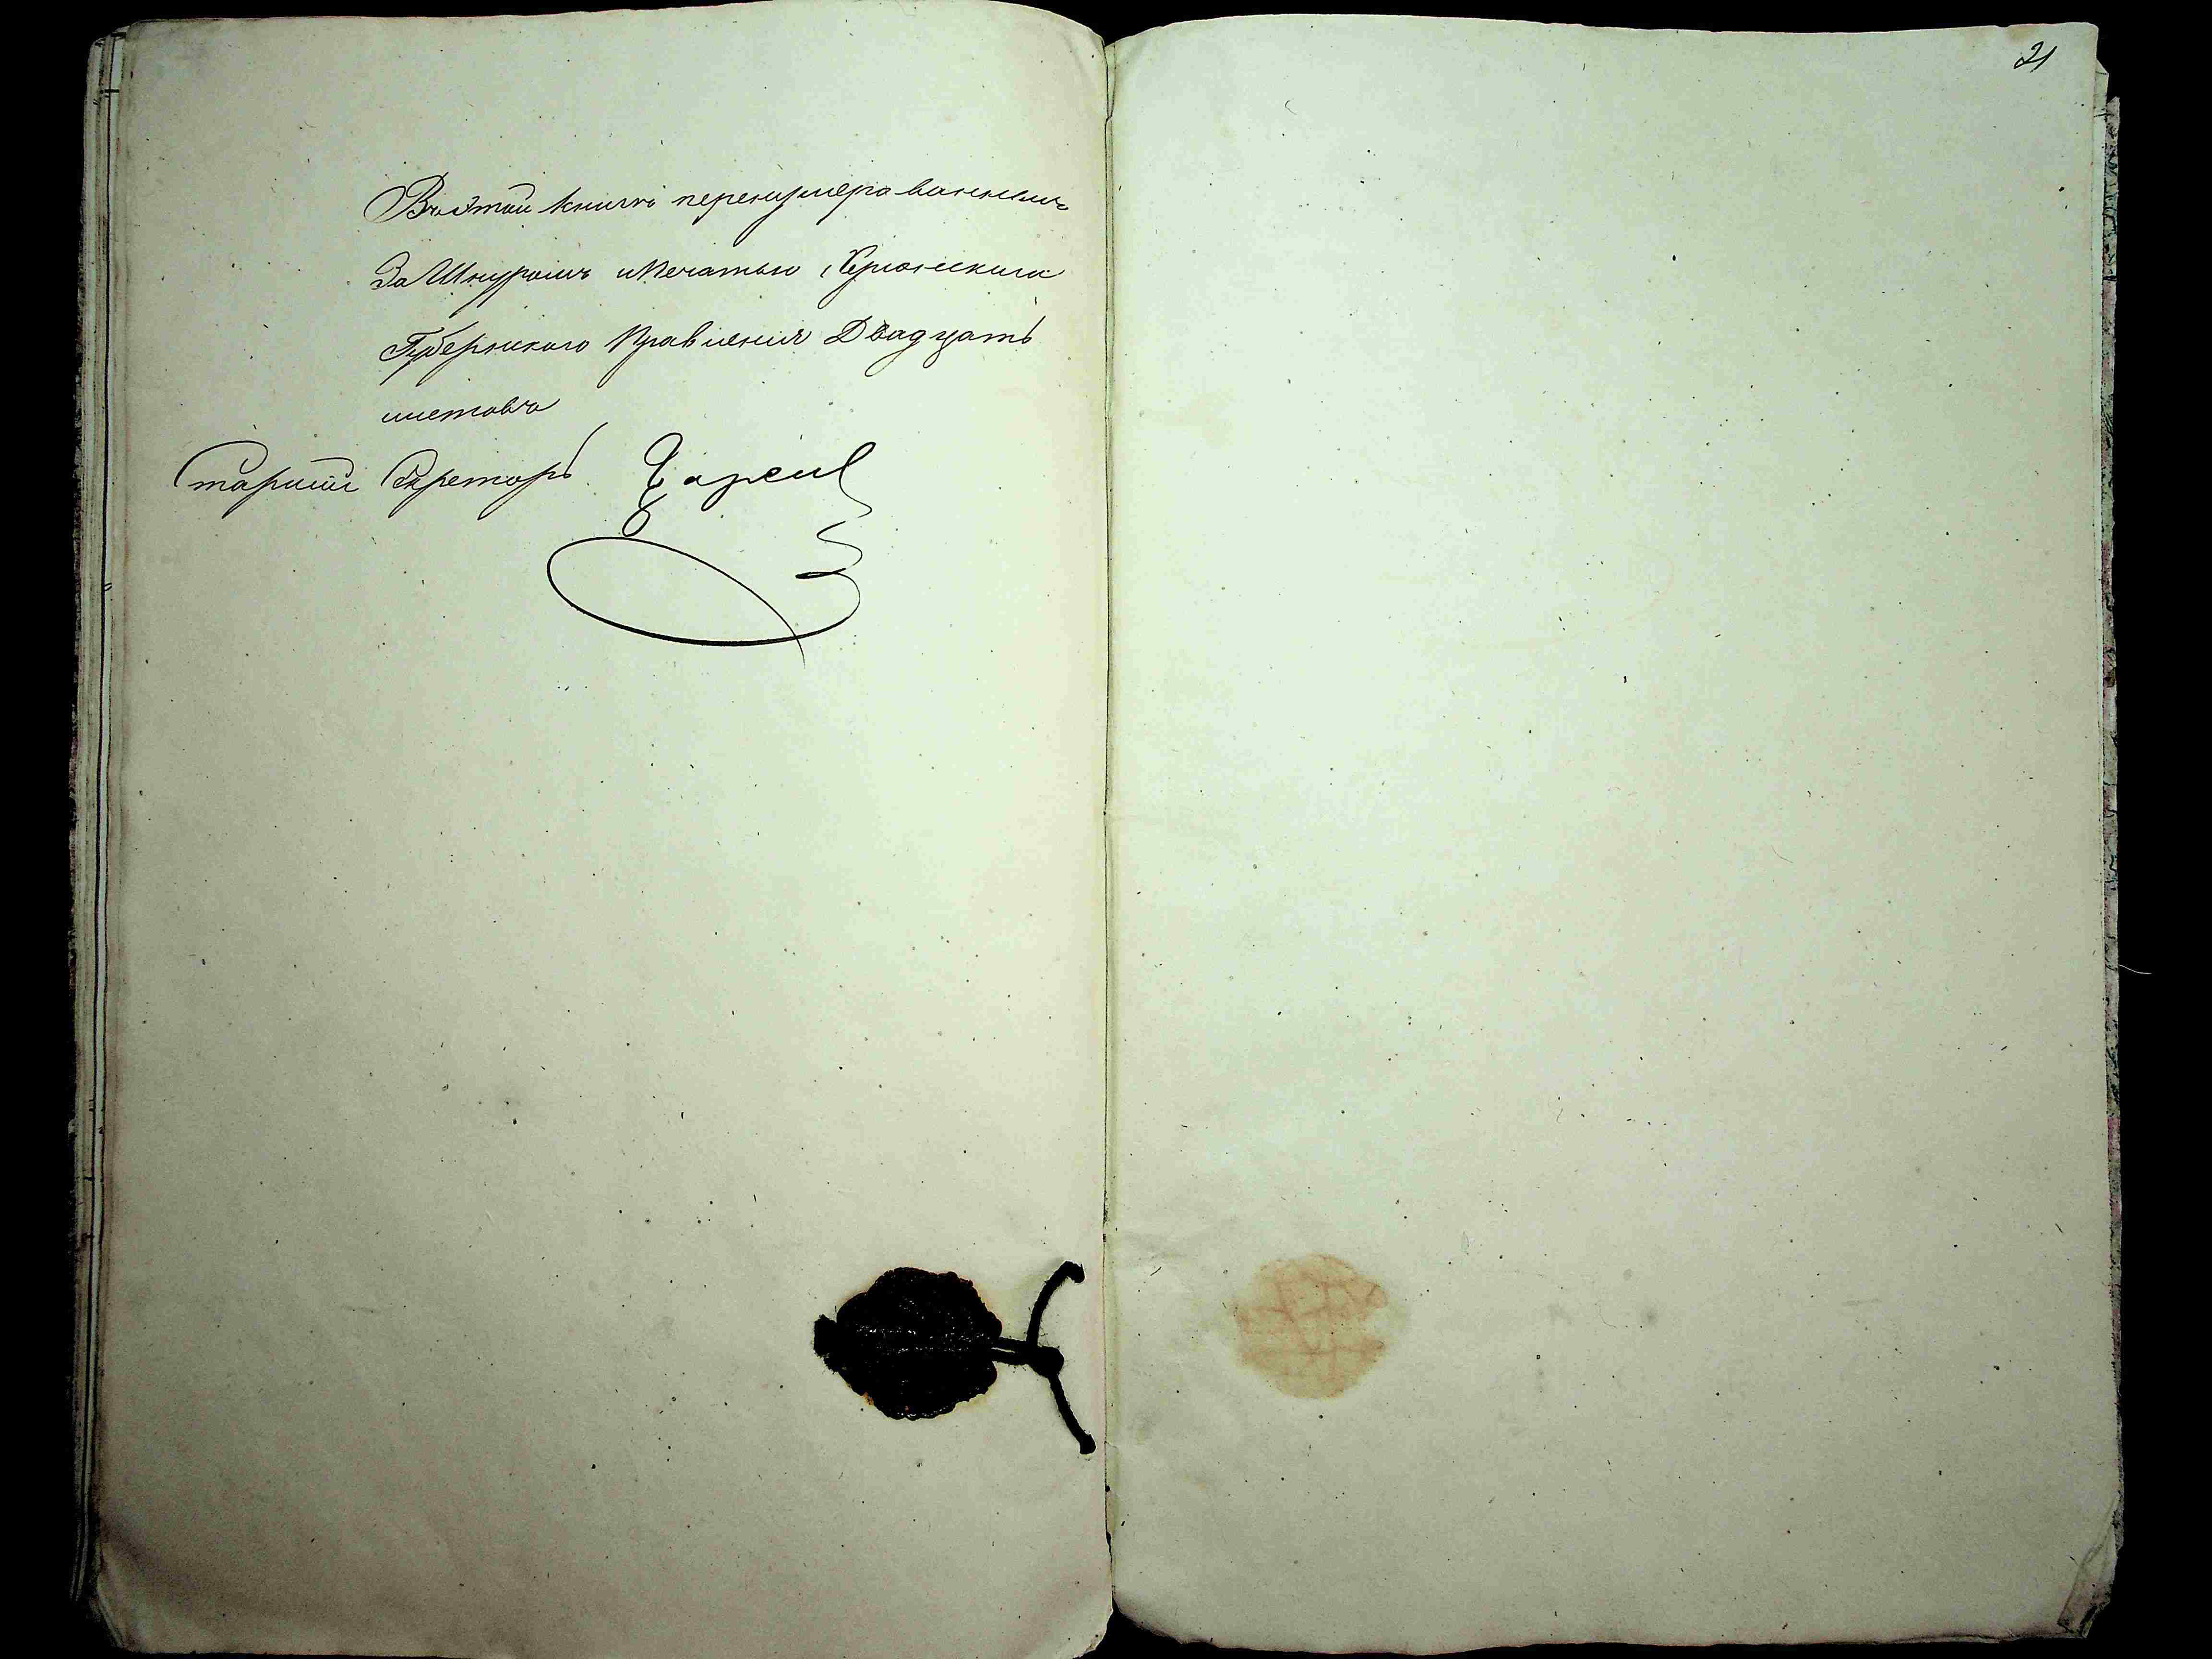 21
Въ этой книгѣ перенумерованныхъ
За Шнуромъ и Печатью Херсонскаго
Губернскаго Правленія Двадцать
листовъ
Старшій Секретарь